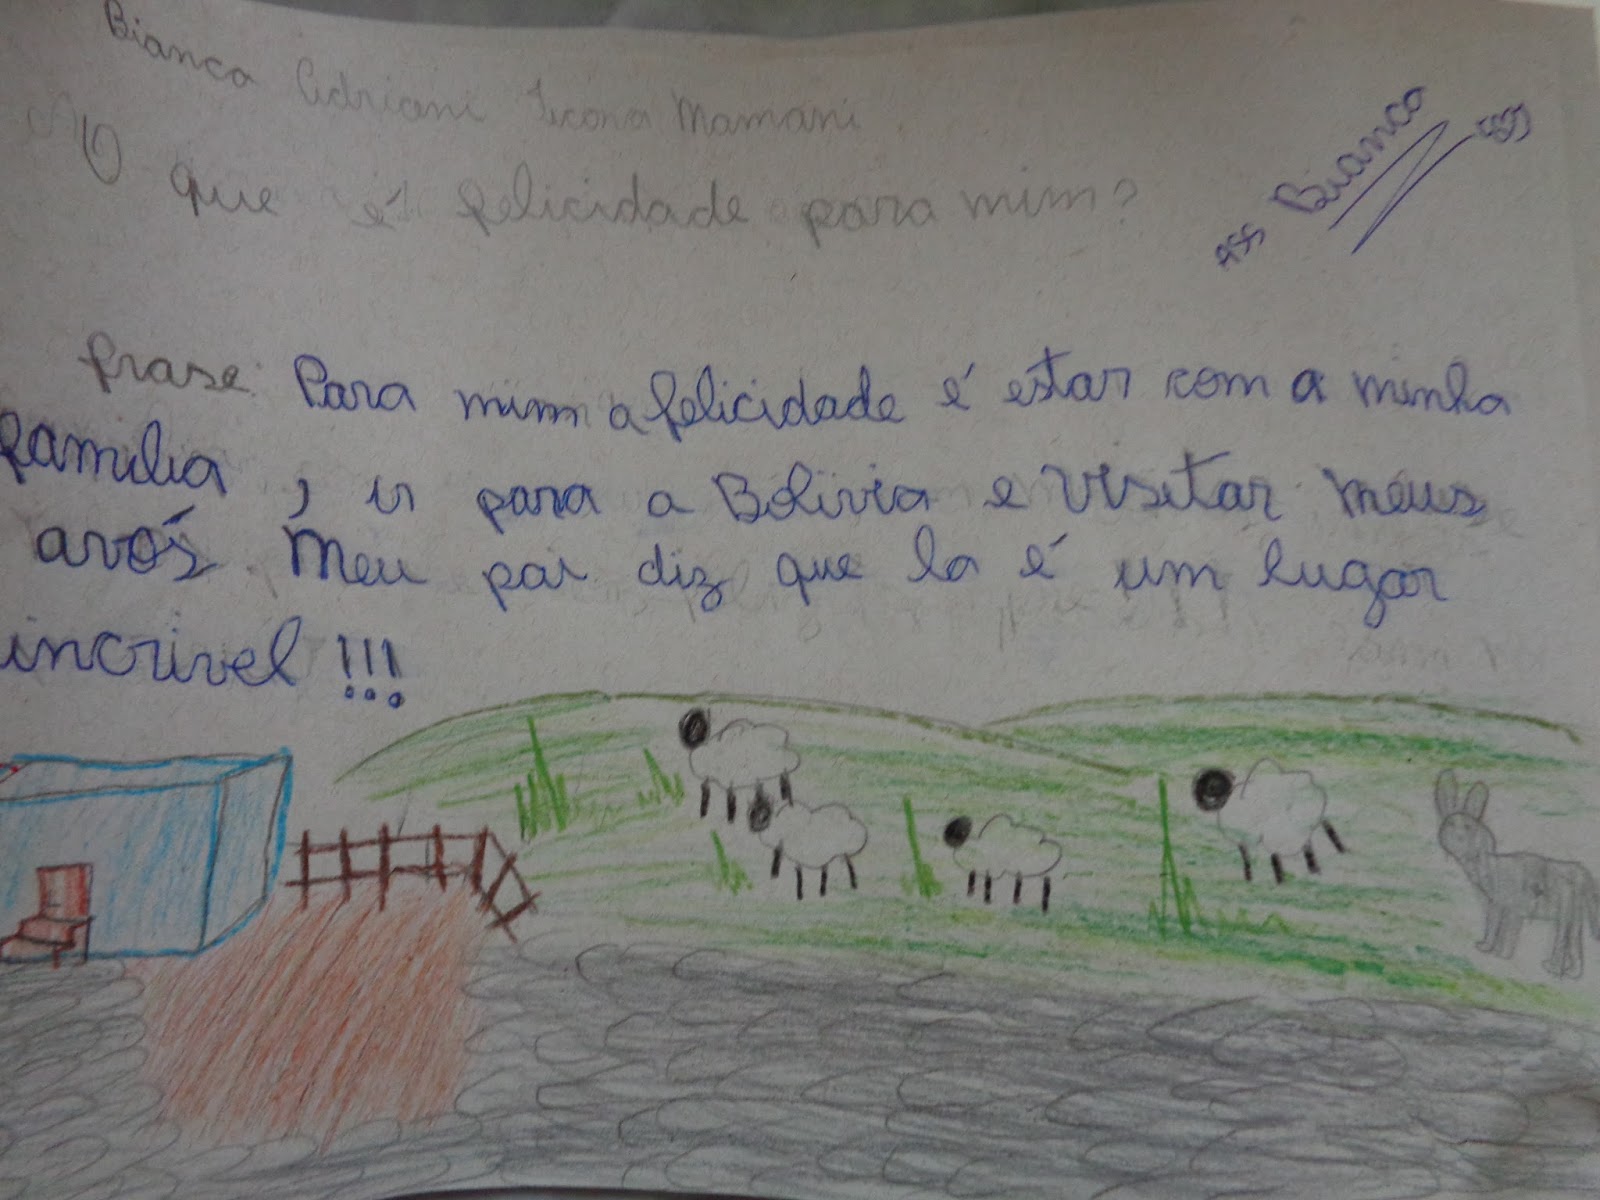 Bianca Adriani Ticona Mamani.
O que é felicidade para mim?
Ass Bianca
frase: Para mim a felicidade é estar com a minha
familia, ir para a Bolivia e visitar meus
avós. Meu pai diz que la é um lugar
incrivel !!!